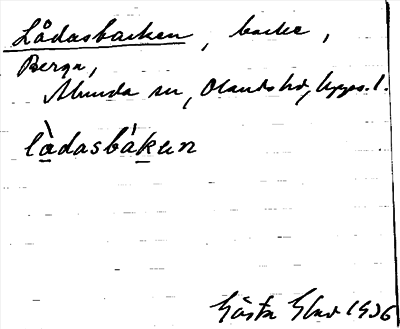 Lådasbacken, backe,
Berga,
Almunda sn, Olands hd, Upps. l.
làdasbákun
Gösta Elad 1936